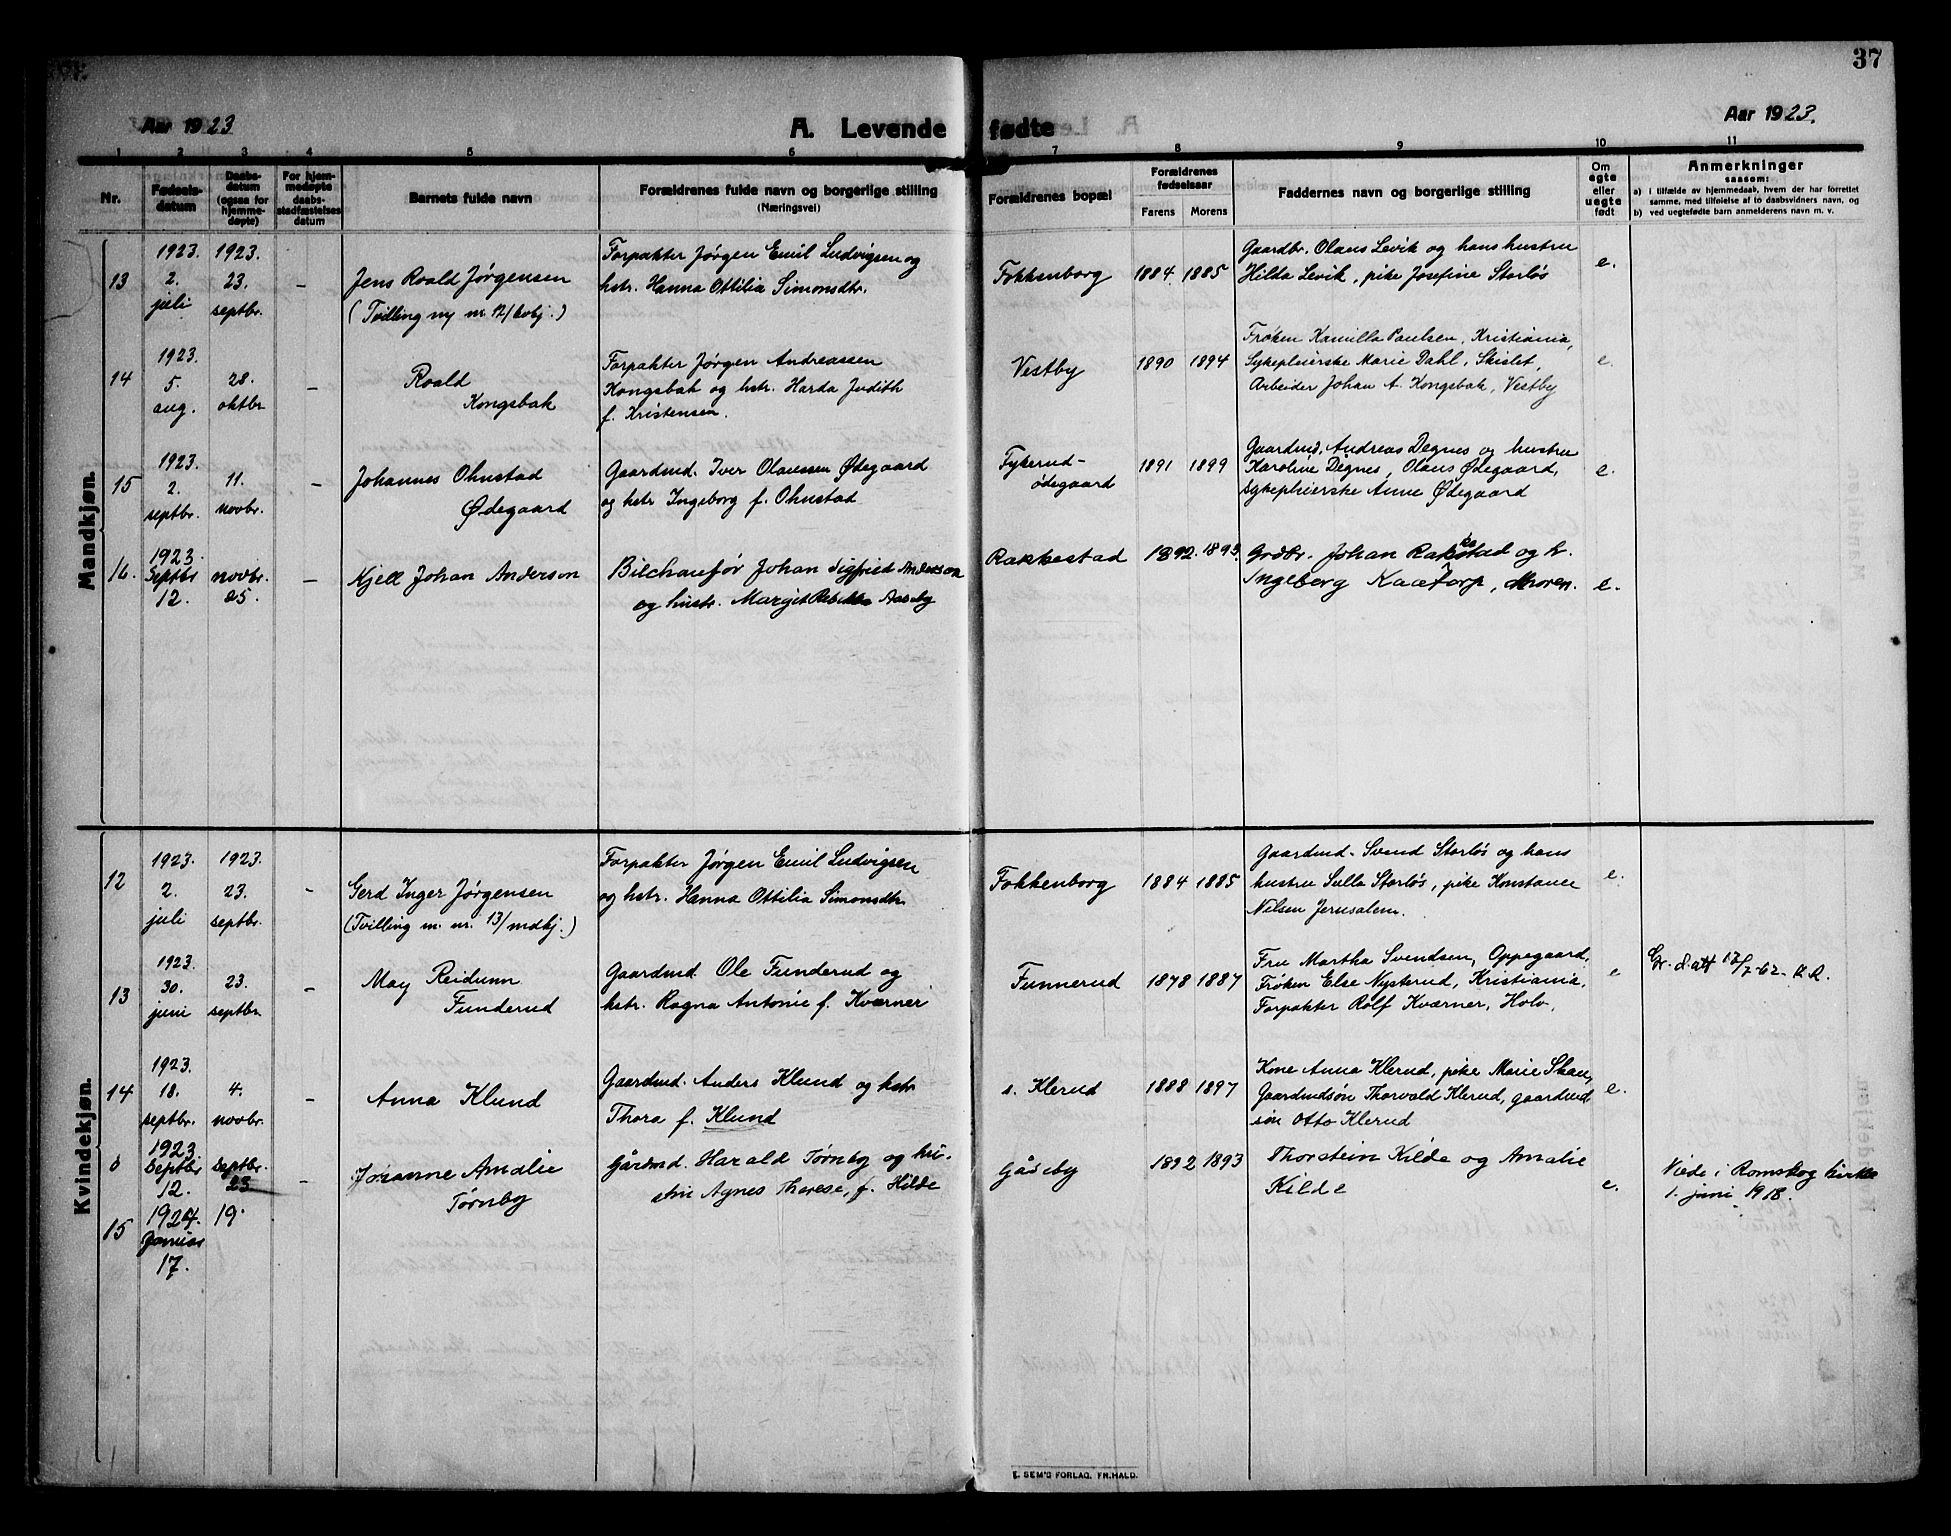 37
Aar 1923
A. Levende fødte
Aar 1923.
1 2 3 4 5 6 7 8 9 10 11
Nr.
Fødsels-
datum
Daabs-
datum
(ogsaa for
hjemme-
døpte)
For hjem-
medøpte
daabs-
stadfæstelses
datum
Barnets fulde navn
Forældrenes fulde navn og borgerlige stilling
(Næringsvei)
Forældrenes bopæl
Forældrenes
fødselsaar
Farens Morens
Faddernes navn og borgerlige stilling
Om
egte
eller
uegte
født
Anmerkninger
saasom:
a) i tilfælde av hjemmedaab, hvem der har forrettet
samme, med tilføielse af to daabsvidners navn, og
b) ved uegtefødte barn anmelderens navn m. v.
Mandkjøn.
13
1923.
2.
juli
1923.
23.
septbr.
-
Jens Roald Jørgensen
(Tvilling m nr 12/kvkj.)
Forpakter Jørgen Emil Ludvigsen og
hstr. Hanna Ottilia Simonsdtr.
Fokkenborg
1884 1885
Gaardbr. Olaus Levik og hans hustru
Hilda Levik, pike Josefine Storløs
e.
14
1923.
5.
aug.
28.
oktbr
-
Roald
Kongsbak
Forpakter Jørgen Andreassen
Kongsbak og hstr. Harda Judith
f. Kristensen.
Vestby
1890 1894
Frøken Kamilla Paulsen, Kristiania,
Sykepleierske Marie Dahl, Skislet,
Arbeider Johan A. Kongsbak, Vestby
e.
15
1923.
2.
septbr.
11.
novbr.
-
Johannes Ohnstad
Ødegaard
Gaardmd. Iver Olaussen Ødegaard
og hstr Ingeborg f. Ohnstad
Fykerud-
ødegaard
1891 1899
Gaardmd. Andreas Degnes og hustru
Karoline Degnes, Olaus Ødegaard,
sykepleierske Anne Ødegaard
e.
16.
1923.
Septbr
12.
novbr.
25.
-
Kjell Johan Anderson
Bilchauffør Johan Sigfried Anderson
og hustr. Margit Aaseby
Rakkestad
1892. 1893.
Grdbr. Johan Rakstad og h.
Ingeborg Kaatorp, Moren.
e.
Kvindekjøn.
12
1923.
2.
juli
1923.
23.
septbr.
-
Gerd Inger Jørgensen
(Tvilling m. nr. 13/mdkj.)
Forpakter Jørgen Emil Ludvigsen
og hstr. Hanna Ottilia Simonsdtr
Fokkenborg
1884 1885
Gaardmd. Svend Storløs og hans
hustru Sulla Storløs, pike Konstanse
Nilsen Jerusalem.
e.
13
1923.
30.
juni
23.
septbr.
-
May Reidunn
Funderud
Gaardmd. Ole Funderud og
hstr. Ragna Antonie f. Kværner
Funnerud
1878 1887
Fru Martha Svendsen, Oppegaard,
Frøken Else Nysterud, Kristiania,
Forpakter Rolf Kværner, Holv.
e
d.att 17/7-62
14
1923.
18.
septbr.
4.
novbr.
-
Anna Klund
Gaardmd. Anders Klund og hstr
Thora f. Klund
s. Klerud
1888 1897
Kone Anna Klerud, pike Marie Skau,
Gaardmdsøn Thorvald Klerud, gaardmd
søn Otto Klerud
e.
8
1923.
Septbr
12.
Septbr.
23
-
Johanne Amalie
Tørnby
Gårdmd. Harald Tørnby og hu-
stru Agnes Therese, f. Kilde
Gåseby
1892 1893
Thorstein Kilde og Amalie
Kilde
e.
Viede i Romskog kirke
1. juni 1918.
15
1924.
Januar
17.
19
E. SEM'S FORLAG, FR.HALD.